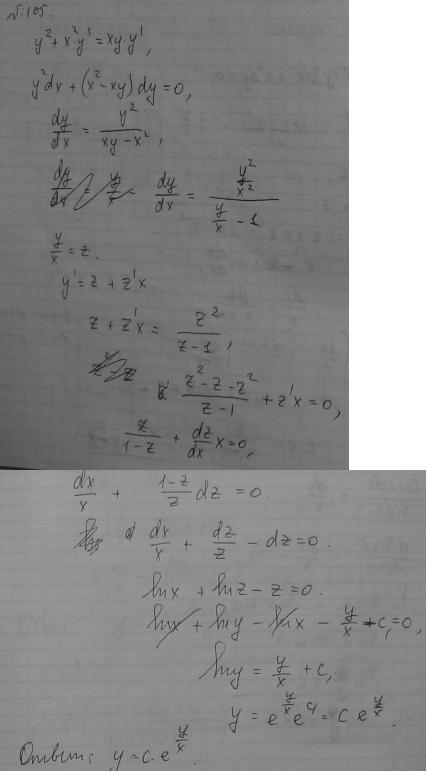 √:105.
y² + x²·y' = xy·y',
y²dx + (x² - xy)dy = 0,
dy/dx = y²/(xy - x²),
dy/dx = (y²/x²)/(y/x - 1)
y/x = z.
y' = z + z'x.
z + z'x = z²/(z - 1),
(z² - z - z²)/(z - 1) + z'x = 0,
z/(1 - z) + dz/dx x = 0,
dx/x + (1 - z)/z dz = 0.
dx/x + dz/z - dz = 0.
lnx + lnz - z = 0.
lnx + lny - lnx - y/x + c₁ = 0,
lny = y/x + c₁
y = e^(y/x) e^(c₁) = c·e^(y/x).
Ответ: y = c·e^(y/x).